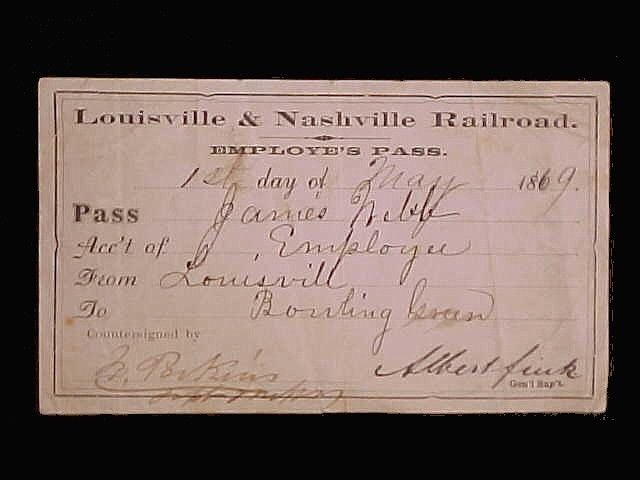 Louisville & Nashville Railroad.
EMPLOYE'S PASS.
1st day of May 1869.
Pass James Webb
Acc't of Employee
From Louisvill
To Bowling Green
Countersigned by
Perkins
Albert fink
Gen'l Sup't.